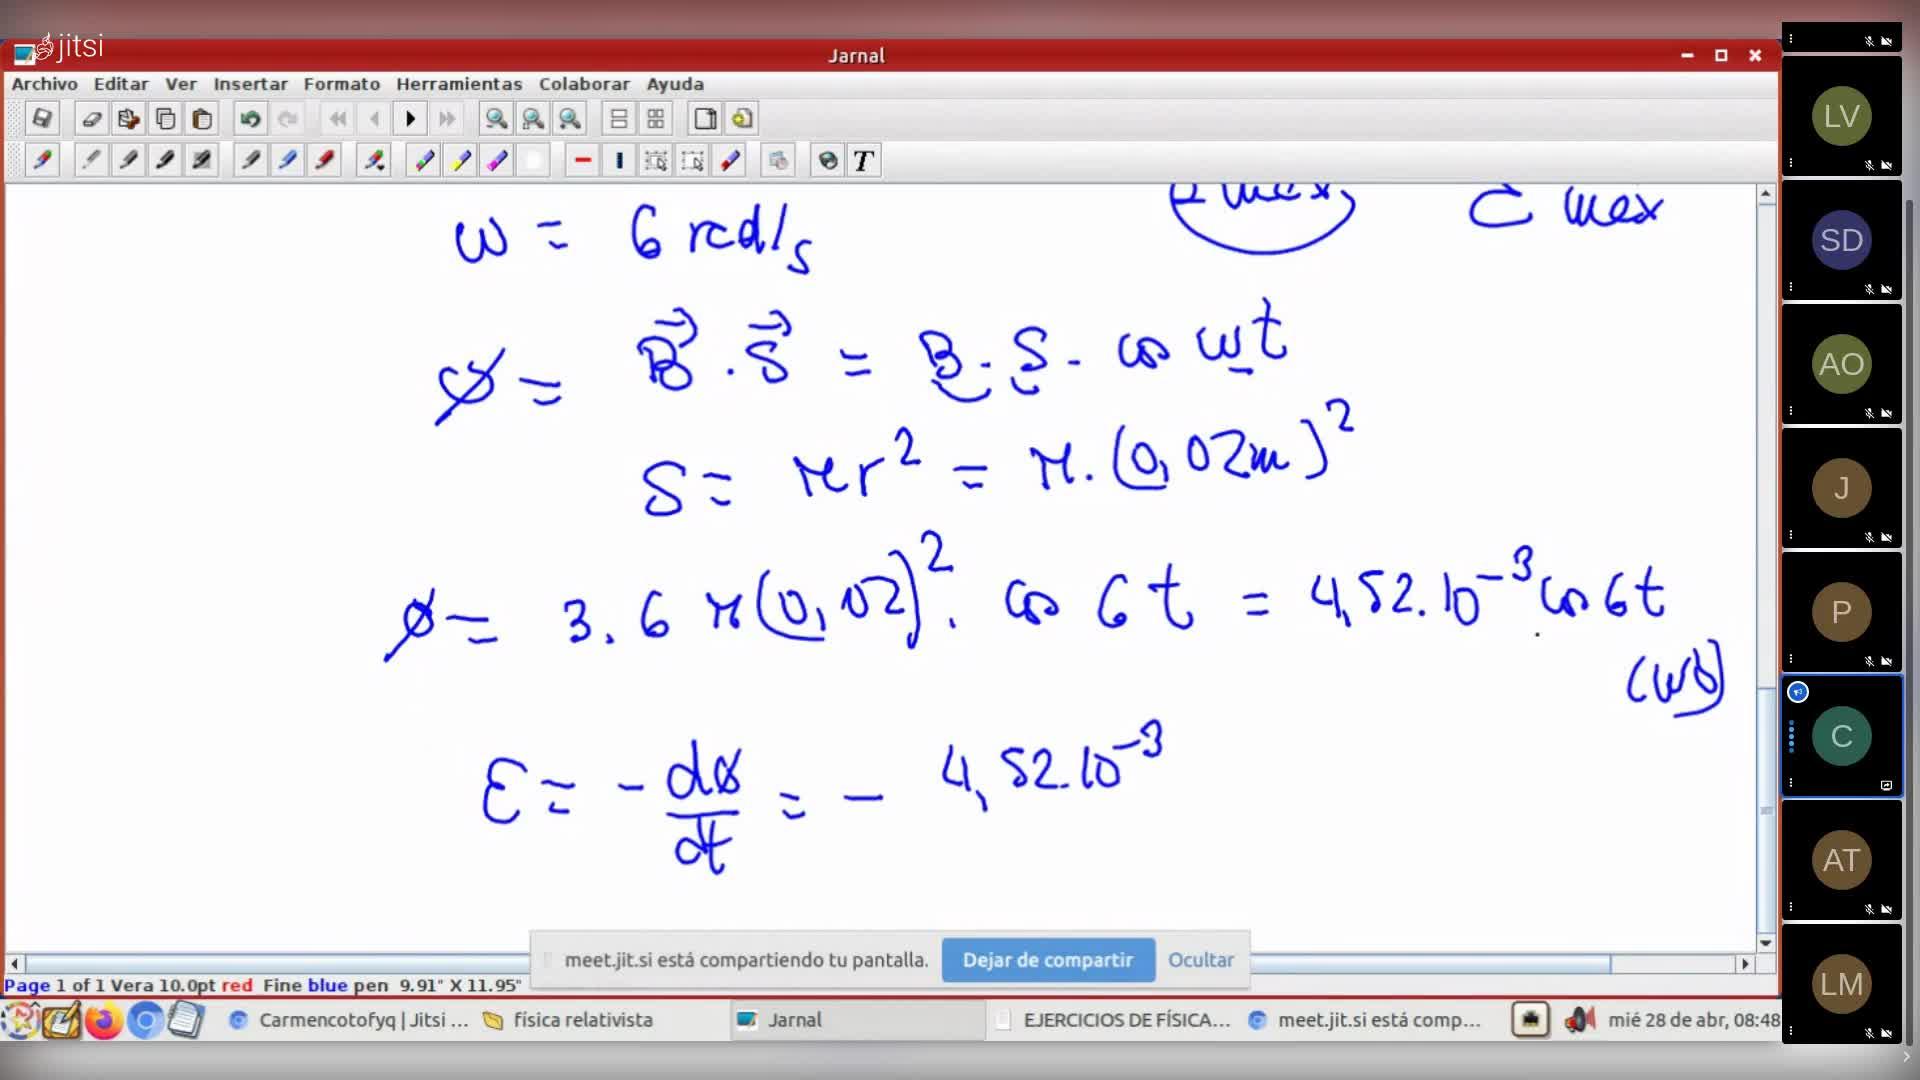 jitsi
Jarnal
Archivo Editar Ver Insertar Formato Herramientas Colaborar Ayuda
T
max, max
ω = 6 rad/s
ϕ = B⃗ . S⃗ = B . S . cos ωt
S = πr² = π . (0,02m)²
ϕ = 3.6 π(0,02)². cos 6t = 4,52.10⁻³ cos 6t
(Wb)
ε = - dϕ/dt = - 4,52.10⁻³
meet.jit.si está compartiendo tu pantalla. Dejar de compartir Ocultar
Page 1 of 1 Vera 10.0pt red Fine blue pen 9.91" X 11.95"
Carmencotofyq | Jitsi ... física relativista Jarnal EJERCICIOS DE FÍSICA... meet.jit.si está comp... mié 28 de abr, 08:48
LV
SD
AO
J
P
C
AT
LM